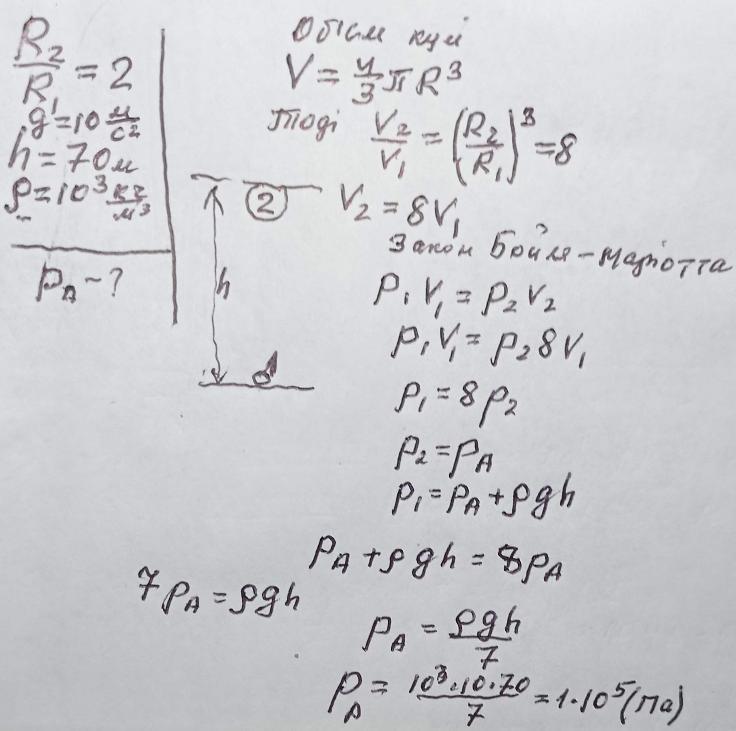 R₂/R₁ = 2
g = 10 м/с²
h = 70 м
ρ = 10³ кг/м³
p_A - ?
h
2
1
Обʼєм кулі
V = 4/3 π R³
Тоді V₂/V₁ = (R₂/R₁)³ = 8
V₂ = 8V₁
Закон Бойля-Маріотта
p₁V₁ = p₂V₂
p₁V₁ = p₂8V₁
p₁ = 8p₂
p₂ = p_A
p₁ = p_A + ρgh
p_A + ρgh = 8p_A
7p_A = ρgh
p_A = ρgh/7
p_A = 10³·10·70/7 = 1·10⁵ (Па)